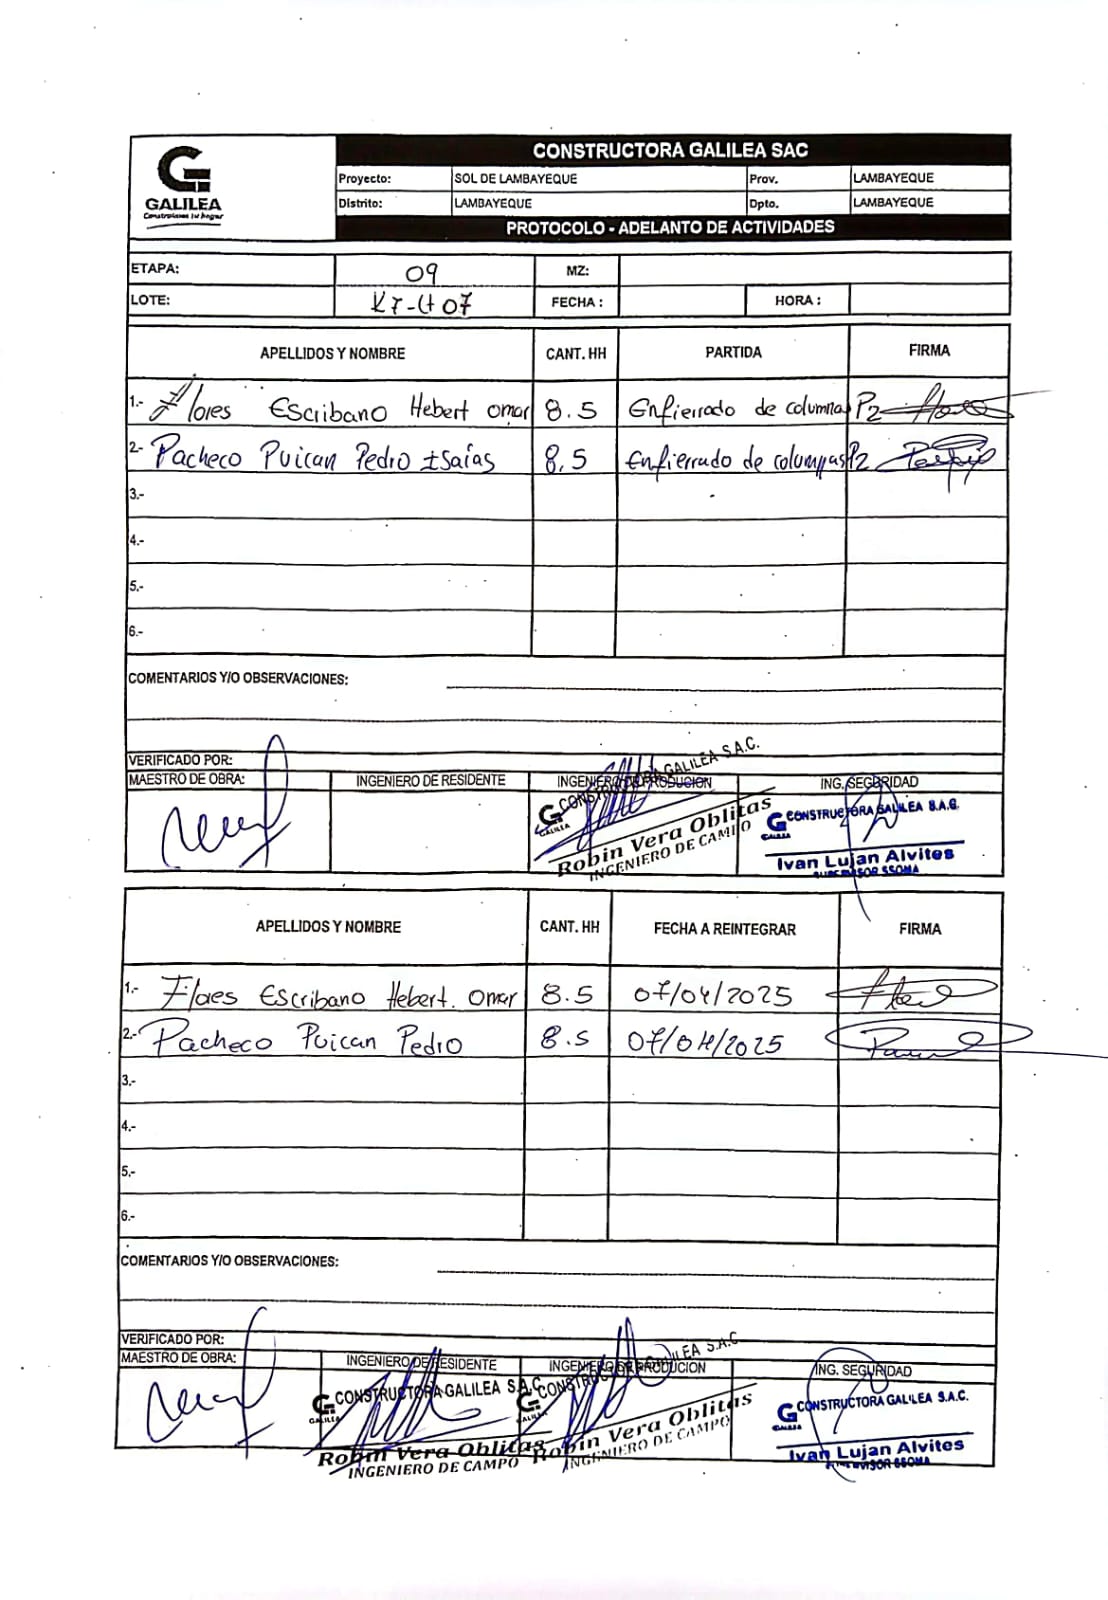 CONSTRUCTORA GALILEA SAC
GALILEA
Construimos tu hogar
Proyecto: SOL DE LAMBAYEQUE Prov. LAMBAYEQUE
Distrito: LAMBAYEQUE Dpto. LAMBAYEQUE
PROTOCOLO - ADELANTO DE ACTIVIDADES
ETAPA: 09 MZ:
LOTE: K7-Lt 07 FECHA : HORA :
APELLIDOS Y NOMBRE CANT. HH PARTIDA FIRMA
1.- Flores Escribano Hebert Omar 8.5 Enfierrado de columna P2
2- Pacheco Puican Pedro Isaías 8.5 Enfierrado de columnas P2
3.-
4.-
5.-
6.-
COMENTARIOS Y/O OBSERVACIONES:
VERIFICADO POR:
MAESTRO DE OBRA: INGENIERO DE RESIDENTE INGENIERO DE PRODUCION ING. SEGURIDAD
CONSTRUCTORA GALILEA S.A.C.
GALILEA
Robin Vera Oblitas
INGENIERO DE CAMPO
CONSTRUCTORA GALILEA S.A.C.
GALILEA
Ivan Lujan Alvites
SUPERVISOR SSOMA
APELLIDOS Y NOMBRE CANT. HH FECHA A REINTEGRAR FIRMA
1.- Flores Escribano Hebert. Omar 8.5 07/04/2025
2.- Pacheco Puican Pedro 8.5 07/04/2025
3.-
4.-
5.-
6.-
COMENTARIOS Y/O OBSERVACIONES:
VERIFICADO POR:
MAESTRO DE OBRA: INGENIERO DE RESIDENTE INGENIERO DE PRODUCION ING. SEGURIDAD
CONSTRUCTORA GALILEA S.A.C.
GALILEA
Robin Vera Oblitas
INGENIERO DE CAMPO
CONSTRUCTORA GALILEA S.A.C.
GALILEA
Robin Vera Oblitas
INGENIERO DE CAMPO
CONSTRUCTORA GALILEA S.A.C.
GALILEA
Ivan Lujan Alvites
SUPERVISOR SSOMA